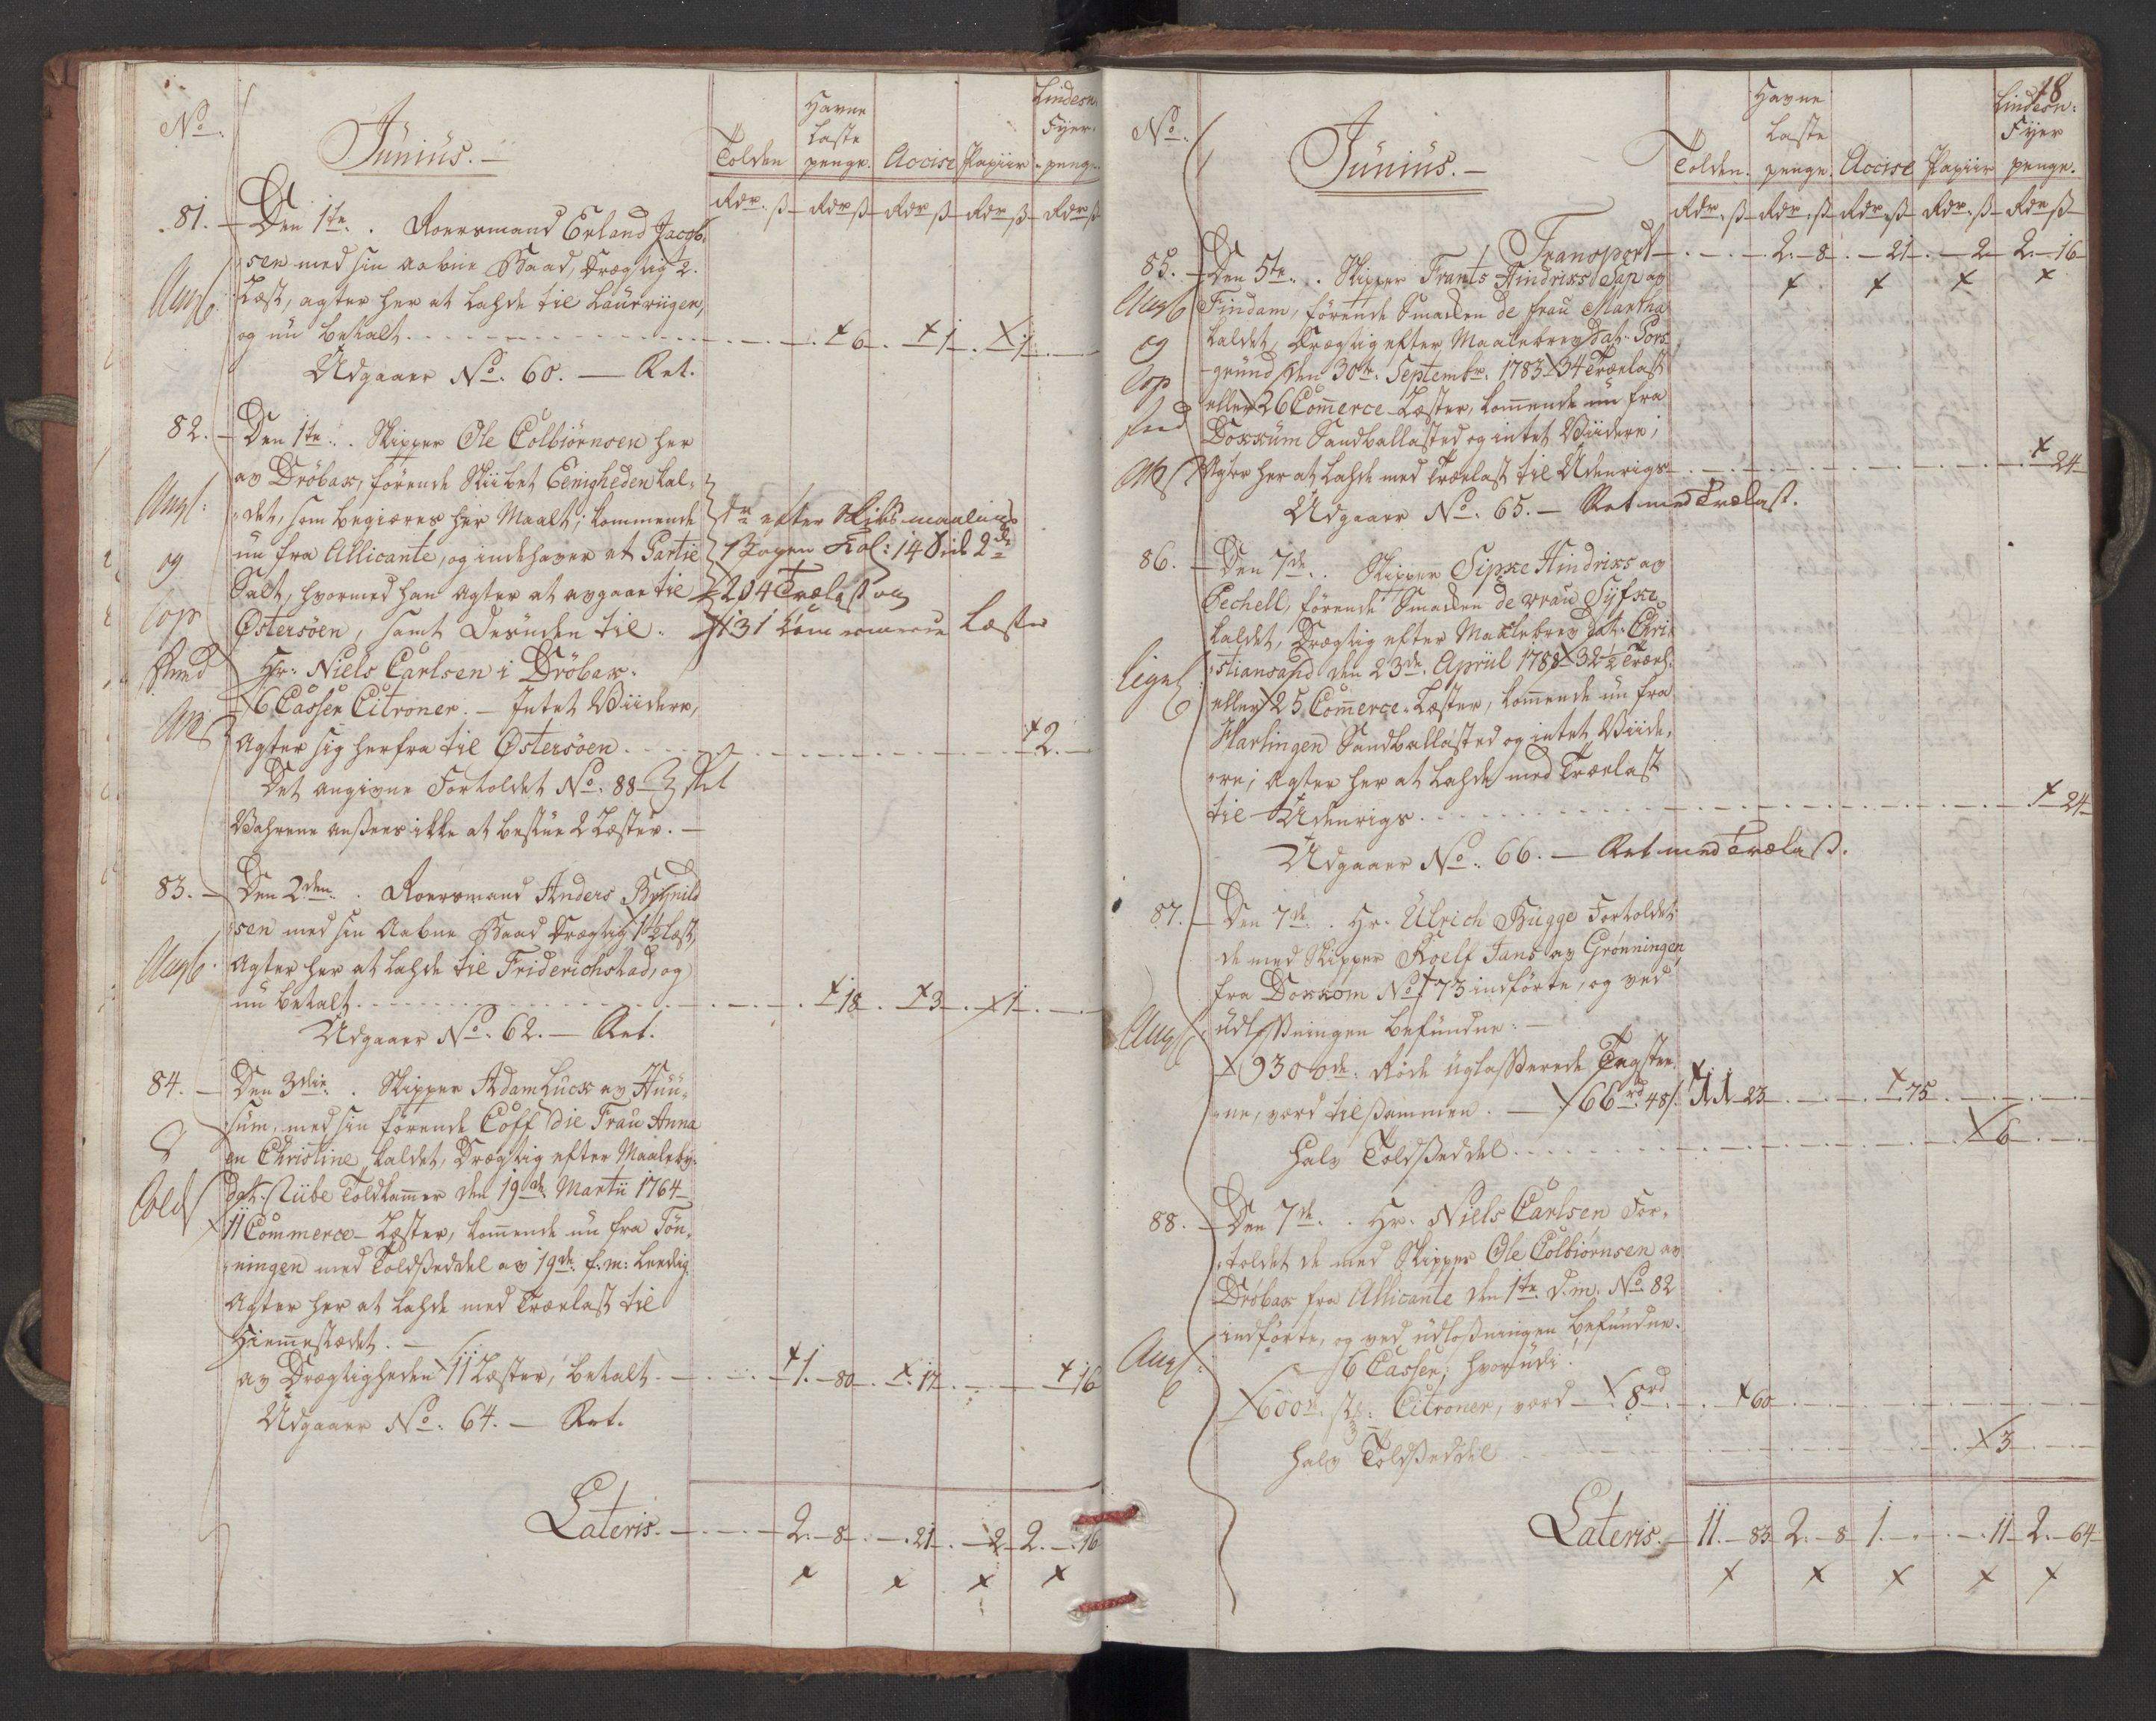 No.
Junius.
Tolden
Havne Laste penge.
Accise
Papiir
Lindesn. Fyer penge.
Rdr. ß Rdr ß Rdr ß Rdr ß Rdr ß
81. Den 1te. Roersmand Erland Jacob-
sen med sin aabne Baad, drægtig 2.
Læst, agter her at lahde til Laurviigen,
og nu betalt. 6. 1. 1.
Udgaaer No. 60. — Ret.
82. Den 1te. Skipper Ole Colbiørnsen her
av Drøbax, førende Skiibet Eenigheden kal-
det, som begiæres her Maalt; kommende
nu fra Allicante, og indehaver et Partie
Salt, hvormed han agter at avgaae til
Østersøen, samt desuden til.
er efter Skibsmaalings
Bogen Fol: 14 Side 2de
204 Trælæst og
131 Commerce Læster
Hr. Niels Carlsen i Drøbax.
6 Casser Citroner. — Intet Viidere,
Agter sig herfra til Østersøen. 2.
Det angivne Fortoldet No. 88 Ret
Vahrene ansees ikke at bestüe 2 Læster. —
83. Den 2den. Roersmand Anders
sen med sin Aabne Baad drægtig 1½ Læst,
Agter her at lahde til Friderichstad, og
nu betalt. 18. 3. 1.
Udgaaer No. 62. — Ret.
84. Den 3die. Skipper Adam Lucx av Huu-
sum, med sin førende Coff die Frau Anna
en Christine kaldet, drægtig efter Maalebr.
dat. Toldkammer den 19de Martii 1764
11 Commerce-Læster, kommende nu fra Tøn-
ningen med Toldseddel av 19de f. m: Leedig.
Agter her at lahde med Trælast til
Hiemmestædet. —
av Drægtigheden 11 Læster, betalt. 1. 80. 17. 16
Udgaaer No. 64. — Ret.
Lateris. 2. 8. 21. 2 2. 16
18
No.
Junius.
Tolden.
Havne Laste penge.
Accise
Papiir
Lindesn: Fyer penge.
Rdr. ß Rdr. ß Rdr. ß Rdr. ß Rdr ß
Transport 2. 8. 21. 2 2. 16
85. Den 5te. Skipper Frants Hindrixs Sap av
Findam, førende Smakken de frau Martha
kaldet, drægtig efter Maalebrev dat. Pors-
grund den 30te Septembr. 1783 34 Trælast
eller 26 Commerce-Læster, kommende nu fra
Dockum Sandballasted og intet Viidere;
Agter her at lahde med Trælast til Udenrigs 24
Udgaaer No. 65. — Ret med Trælast.
86. Den 7de. Skipper Sipke Hindrixs av
Pechell, førende Smakken de vrau Syfke
kaldet, drægtig efter Maalebrev dat. Chri-
stiansand den 23de Apriil 1788 32½ Træl.
eller 25 Commerce-Læster, kommende nu fra
Harlingen Sandballasted og intet Viide-
re; agter her at lahde med Trælast
til Udenrigs. 24
Udgaaer No. 66. — Ret med Trælast.
87. Den 7de. Hr. Ulrich Bugge Fortoldet
de med Skipper Roelf Jans av Grønningen
fra Dockom No. 73 indførte, og ved
udlosningen befundne: —
9300de. Røde uglasserede Tagstee-
ne, værd tilsammen. — 66 rd. 48 ß. 11 23 75
halv Toldseddel 6
88. Den 7de. Hr. Niels Carlsen For-
toldet de med Skipper Ole Colbiørnsen av
Drøbax fra Allicante den 1te. d. m. No. 82
indførte, og ved udlosningen befundne.
6 Casser; hvorudi:
600de. stk: Citroner, værd 8 rd. 60
halv Toldseddel 3
Lateris. 11. 83 2. 8 1. 11 2. 64